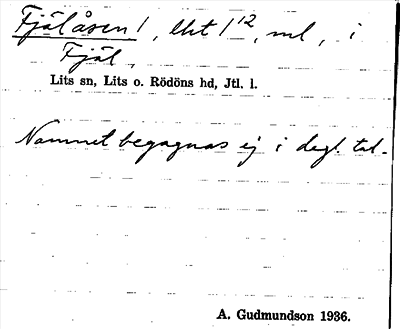 Fjälåsen 1, eht 1/12, ml, i
Fjäl,
Lits sn, Lits o. Rödöns hd, Jtl. l.
Namnet begagnas ej i dagl. tal.
A. Gudmundson 1936.